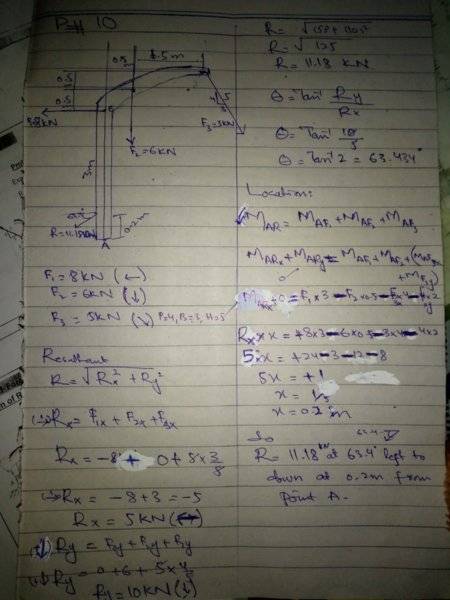 10
0.5
1.5m
0.5
0.5
F1=8KN
3m
F2=6KN
F3=5KN
4
5
3
R=11.18KN
0.2m
A
F1 = 8KN (←)
F2 = 6KN (↓)
F3 = 5KN (↘) P=4, B=3, H=5
Resultant
R = √Rx² + Ry²
(→) Rx = F1x + F2x + F3x
Rx = -8 + 0 + 5×3/5
(→) Rx = -8+3 = -5
Rx = 5KN (←)
(↓) Ry = F1y + F2y + F3y
(↓) Ry = 0+6 + 5×4/5
Ry = 10KN (↓)
R = √125
R = 11.18 KN
θ = Tan⁻¹ Ry/Rx
θ = Tan⁻¹ 10/5
θ = Tan⁻¹ 2 = 63.434°
Location:
MAR = MAF1 + MAF2 + MAF3
MARx + MARy = MAF1 + MAF2 + (MAF3x + MAF3y)
0
Rx × x = +8×3 - 6×0.5 - 3×4 - 4×2
5×x = +24 - 3 - 12 - 8
5x = +1
x = 1/5
x = 0.2m
So
R = 11.18 KN at 63.4° left to
down at 0.2m from
point A.